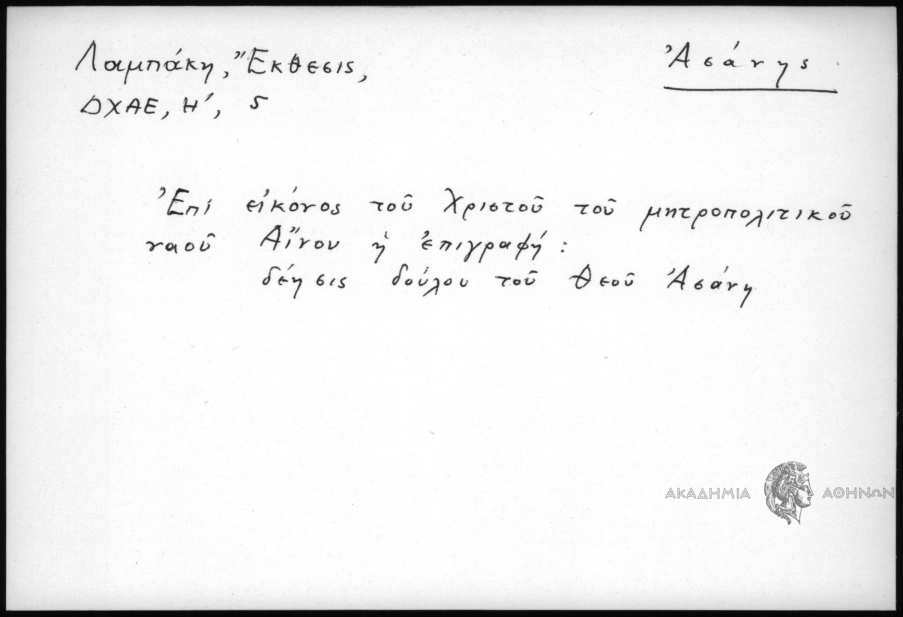 Λαμπάκη, Ἔκθεσις,
ΔΧΑΕ, Η', 5
Ἀσάνης
Ἐπί εἰκόνος τοῦ Χριστοῦ τοῦ μητροπολιτικοῦ
ναοῦ Αἴνου ἡ ἐπιγραφή :
δέησις δούλου τοῦ Θεοῦ Ἀσάνη
ΑΚΑΔΗΜΙΑ ΑΘΗΝΩΝ